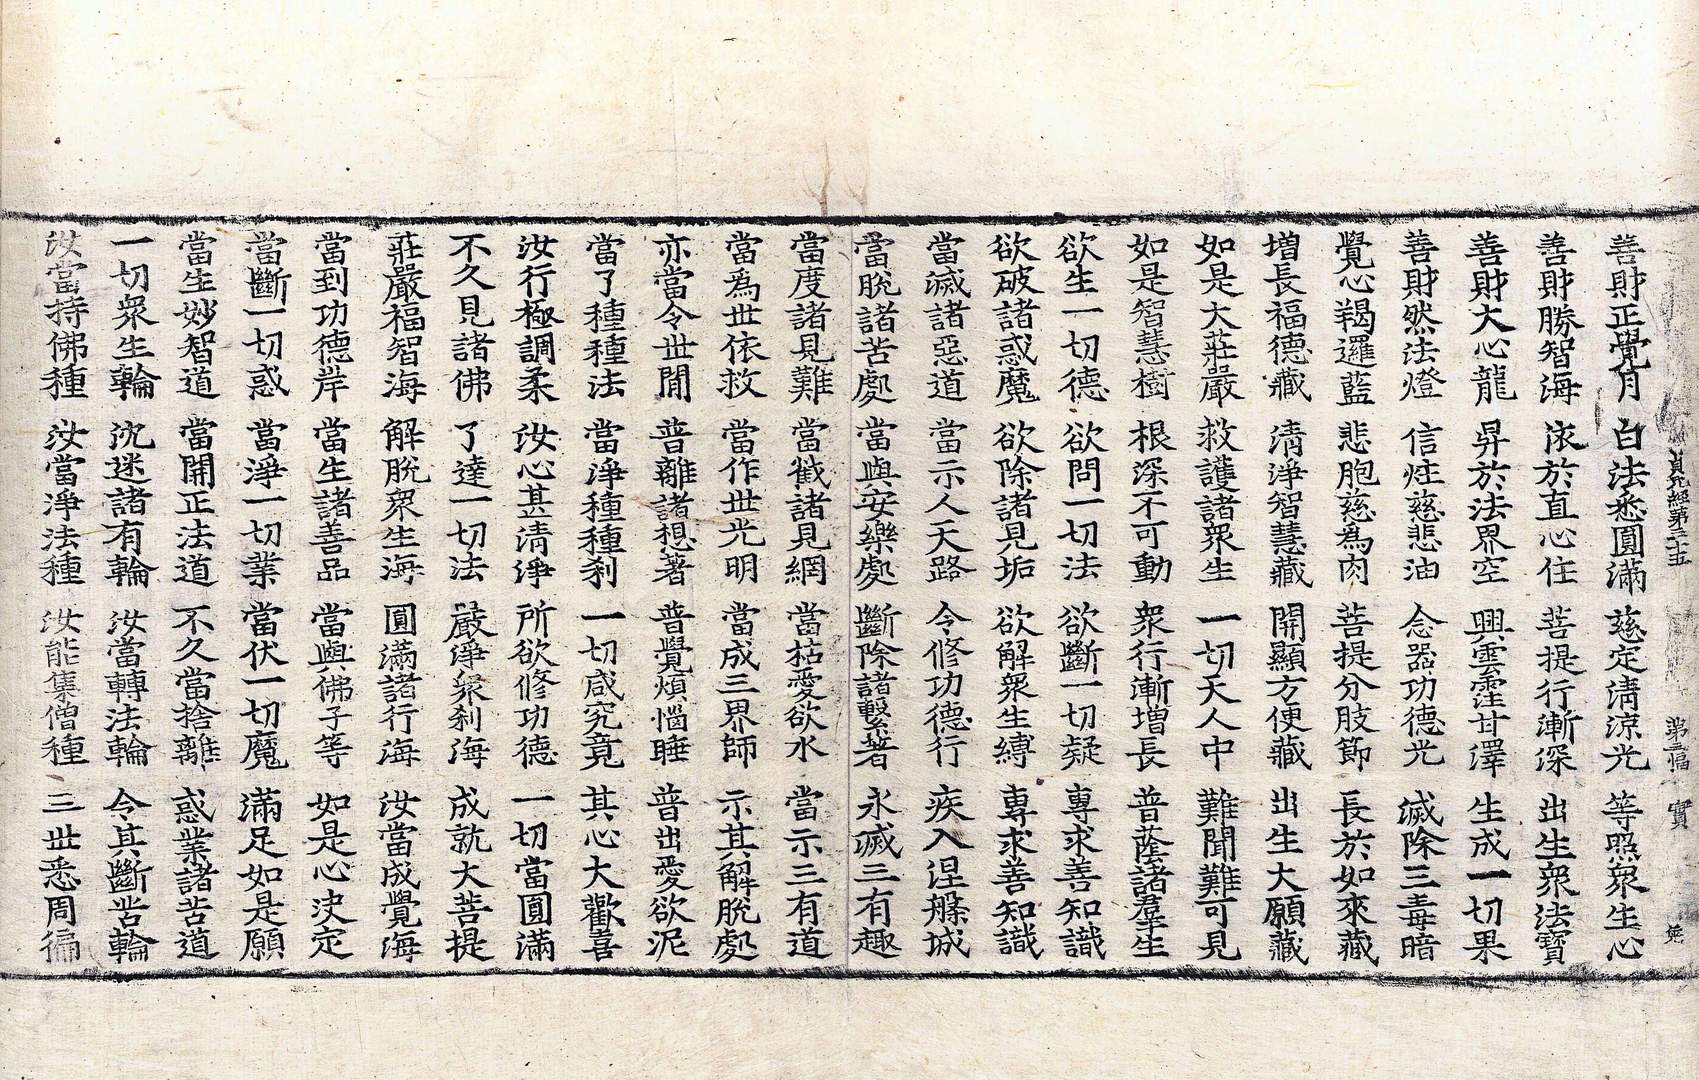 貞元經第三十五 第三幅 實
善財正覺月 白法悉圓滿 慈定淸涼光 等照衆生心
善財勝智海 依於直心住 菩提行漸深 出生衆法寶
善財大心龍 昇於法界空 興雲霔甘澤 生成一切果
善財然法燈 信炷慈悲油 念器功德光 滅除三毒暗
覺心羯邏藍 悲胞慈為肉 菩提分肢節 長於如來藏
增長福德藏 淸淨智慧藏 開顯方便藏 出生大願藏
如是大莊嚴 救護諸衆生 一切天人中 難聞難可見
如是智慧樹 根深不可動 衆行漸增長 普蔭諸羣生
欲生一切德 欲問一切法 欲斷一切疑 專求善知識
欲破諸惑魔 欲除諸見垢 欲解衆生縛 專求善知識
當滅諸惡道 當示人天路 令修功德行 疾入涅槃城
當脫諸苦處 當與安樂處 斷除諸繫著 永滅三有趣
當度諸見難 當截諸見網 當枯愛欲水 當示三有道
當爲世依救 當作世光明 當成三界師 示其解脫處
亦當令世閒 普離諸想著 普覺煩惱睡 普出愛欲泥
當了種種法 當淨種種刹 一切咸究竟 其心大歡喜
汝行極調柔 汝心甚淸淨 所欲修功德 一切當圓滿
不久見諸佛 了達一切法 嚴淨衆刹海 成就大菩提
莊嚴福智海 解脫衆生海 圓滿諸行海 汝當成覺海
當到功德岸 當生諸善品 當與佛子等 如是心決定
當斷一切惑 當淨一切業 當伏一切魔 滿足如是願
當生妙智道 當開正法道 不久當捨離 惑業諸苦道
一切衆生輪 沈迷諸有輪 汝當轉法輪 令其斷苦輪
汝當持佛種 汝當淨法種 汝能集僧種 三世悉周徧